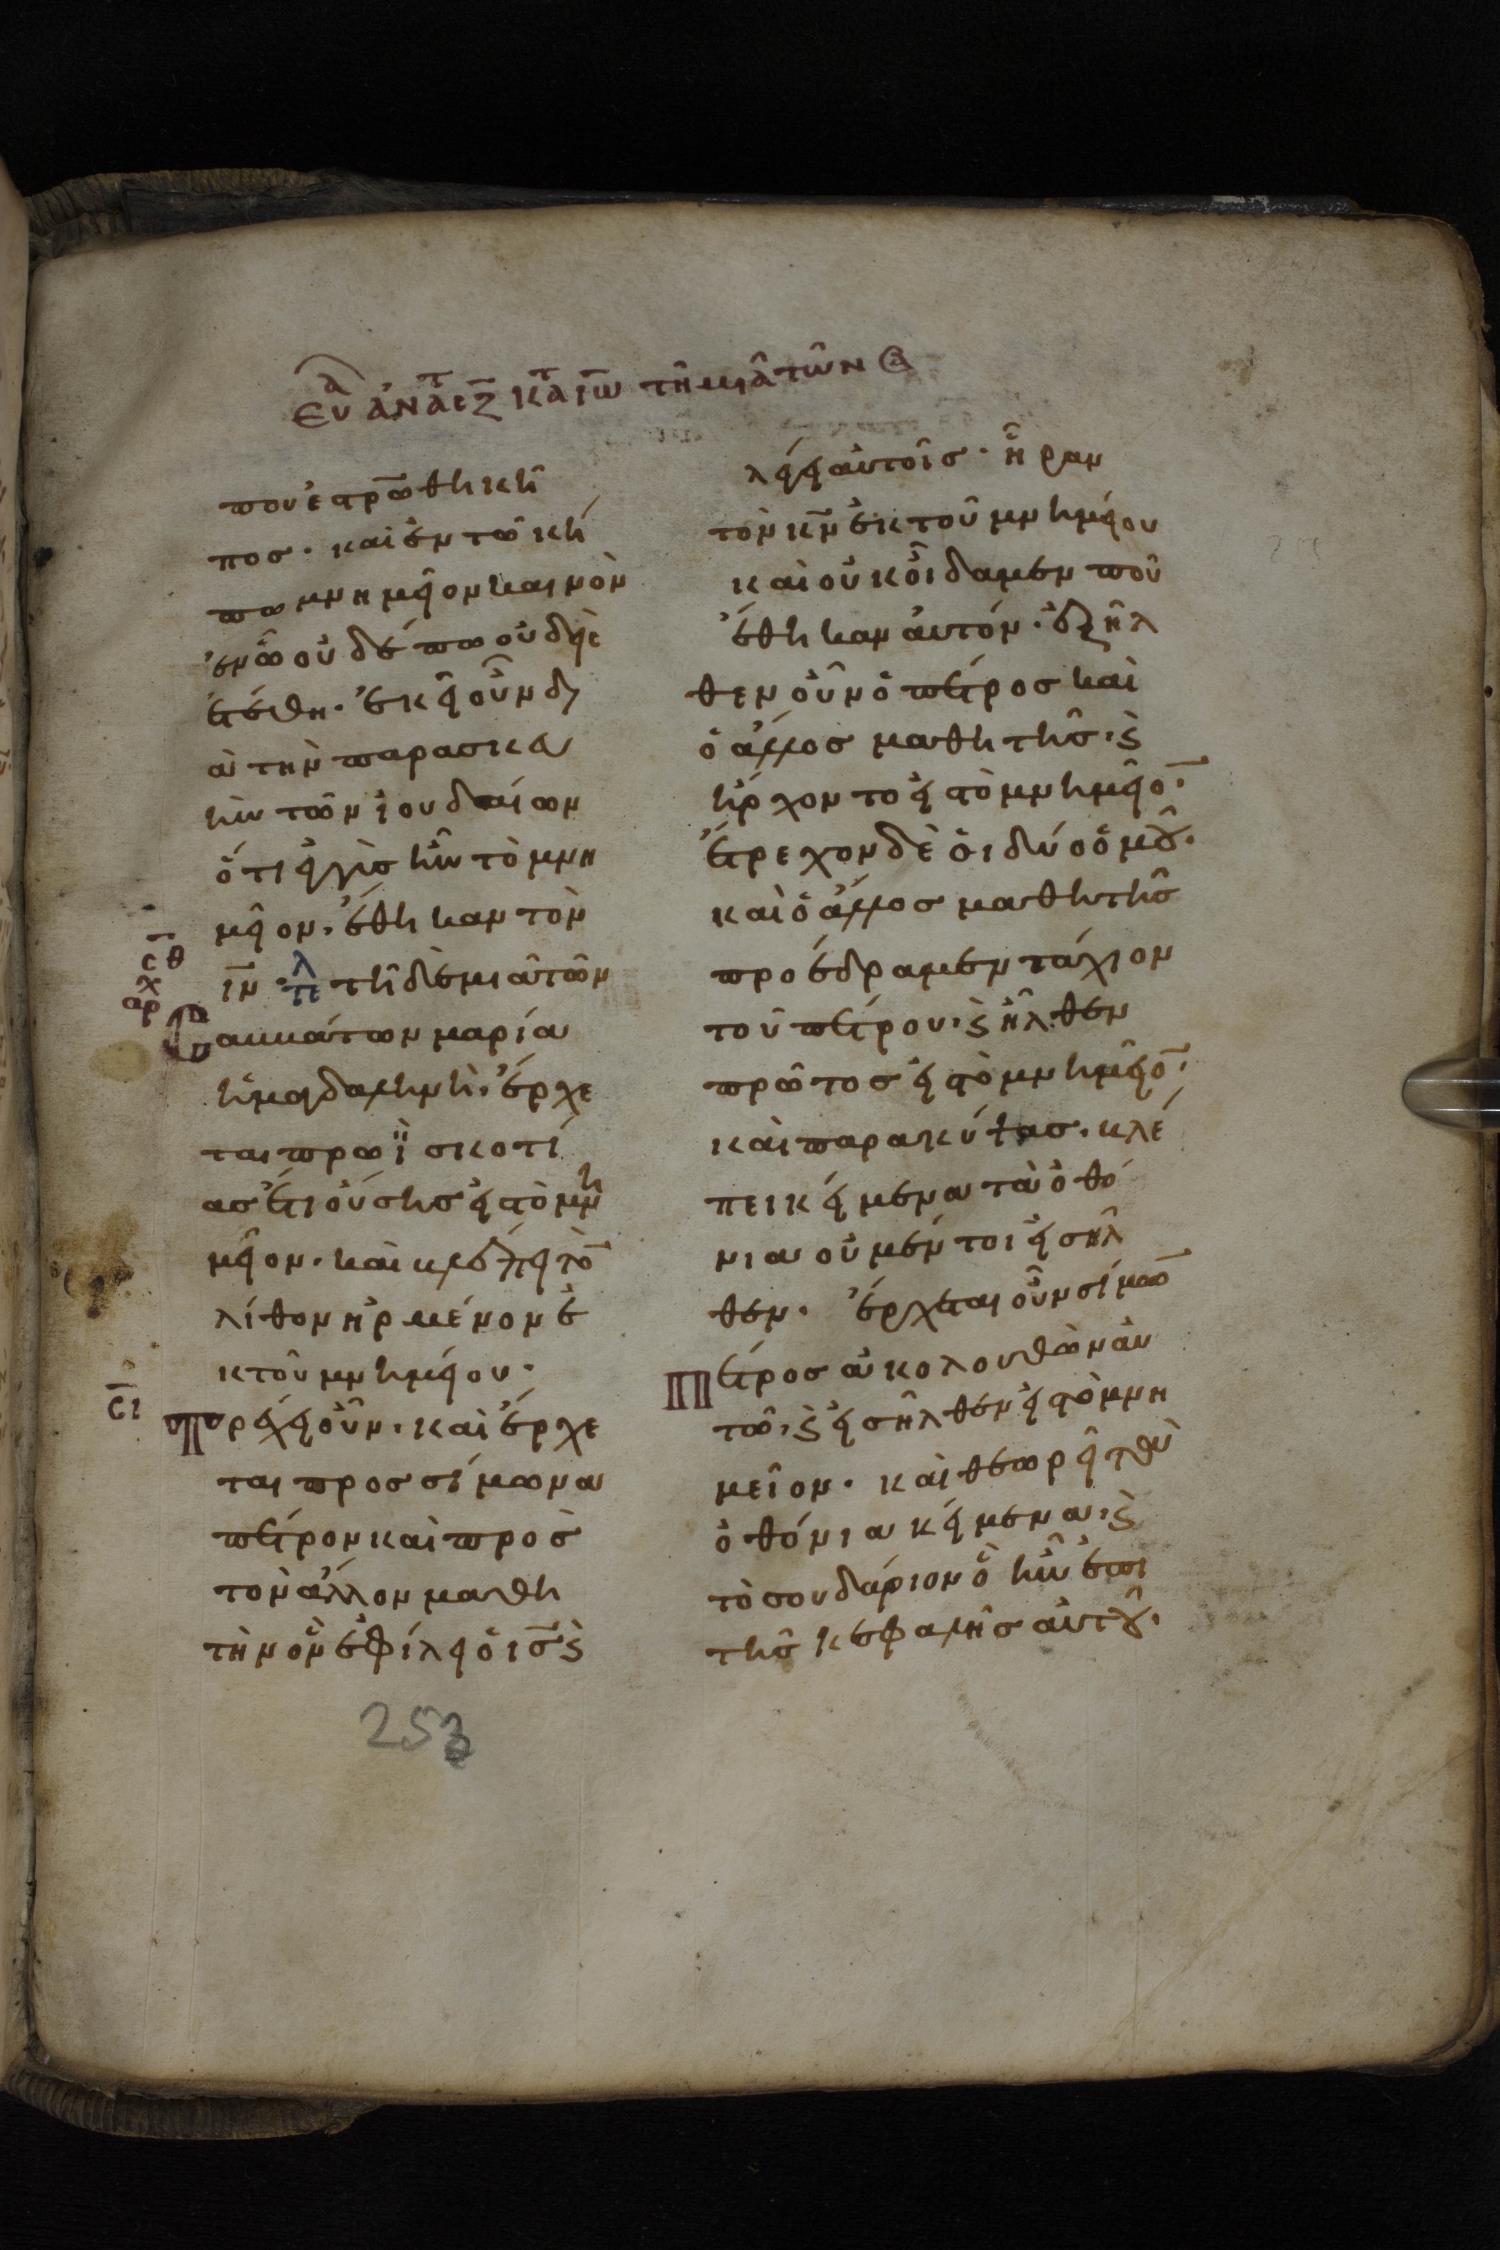 ΕΥΑ ἈΝΑΣΤ Ζ ΚΑΤ ΙΩ ΤΗ ΜΙΑ ΤΩΝ ΣΑ
που ἐστρώθη κῆ
πος· καὶ ἐν τῶ κή
πω μνημεῖον καινὸν
ἐν ῶ οὐδέπω οὐδεὶς
ἐτέθη· ἐκεῖ οὖν δι
ὰ τὴν παρασκευ
ὴν τῶν ἰουδαίων
ὅτι ἐγγὺς ἦν τὸ μνη
μεῖον, ἔθηκαν τὸν
ιν· τῆ δὲ μιᾶ τῶν
σαββάτων μαρία
ἡ μαγδαληνὴ, ἔρχε
ται πρωῒ σκοτί
ας ἔτι οὔσης εἰς τὸ μνη
μεῖον· καὶ βλέπει τὸ
λίθον ἠρμένον ἐ
κ τοῦ μνημείου·
τρέχει οὖν, καὶ ἔρχε
ται προς σίμωνα
πέτρον καὶ πρὸς
τὸν ἄλλον μαθη
τὴν ὃν ἐφίλει ὁ ις κ
λέγει αὐτοῖς· ἦραν
τὸν κν ἐκ τοῦ μνημείου
καὶ οὐκ οἴδαμεν ποῦ
ἔθηκαν αὐτόν· ἐξῆλ
θεν οὖν ὁ πέτρος καὶ
ὁ ἄλλος μαθητῆς, κ
ἤρχοντο εἰς τὸ μνημεῖο·
ἔτρεχον δὲ οἱ δύο ὁμοῦ·
καὶ ὁ ἄλλος μαθητῆς
προέδραμεν τάχιον
τοῦ πέτρου, κ ἦλθεν
πρῶτος εἰς τὸ μνημεῖο·
καὶ παρακύψας, βλέ
πει κείμενα τὰ ὀθό
νια οὐ μέντοι εἰσῆλ
θεν· ἔρχεται οὖν σίμω
πέτρος ἀκολουθῶν αὐ
τῶ, κ εἰσῆλθεν εἰς τὸ μνη
μεῖον· καὶ θεωρεῖ τὰ
ὀθόνια κείμενα, κ
τὸ σουδάριον ὃ ἦν ἐπι
τῆς κεφαλῆς αὐτοῦ·
σθ
σι
253